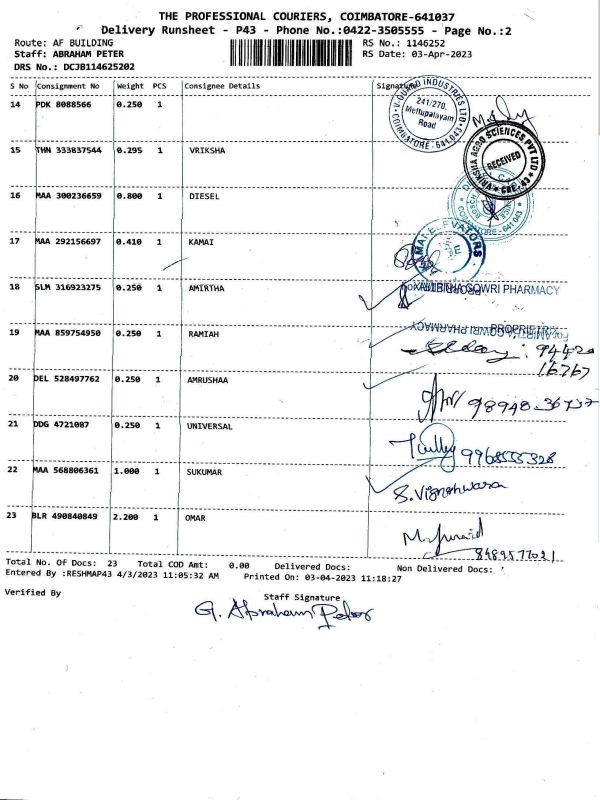 THE PROFESSIONAL COURIERS, COIMBATORE-641037
Delivery Runsheet - P43 - Phone No.:0422-3505555 - Page No.:2
Route: AF BUILDING RS No.: 1146252
Staff: ABRAHAM PETER RS Date: 03-Apr-2023
DRS No.: DCJB114625202
S No Consignment No Weight PCS Consignee Details Signature
14 PDK 8088566 0.250 1
241/270,
Mettupalayam
Road
COIMBATORE - 641 043
15 THN 333837544 0.295 1 VRIKSHA
VRIKSHA AGRO SCIENCES PVT LTD
RECEIVED
CBE-43
16 MAA 300236659 0.800 1 DIESEL
17 MAA 292156697 0.410 1 KAMAI
18 SLM 316923275 0.250 1 AMIRTHA
GOWRI PHARMACY
19 MAA 859754950 0.250 1 RAMIAH
PROPRIETRIX
94420
16767
20 DEL 528497762 0.250 1 AMRUSHAA
98948-36737
21 DDG 4721087 0.250 1 UNIVERSAL
9968555328
22 MAA 568806361 1.000 1 SUKUMAR
23 BLR 490840849 2.200 1 OMAR
8489577021
Total No. Of Docs: 23 Total COD Amt: 0.00 Delivered Docs: Non Delivered Docs:
Entered By :RESHMAP43 4/3/2023 11:05:32 AM Printed On: 03-04-2023 11:18:27
Verified By Staff Signature
G. Abraham Peter